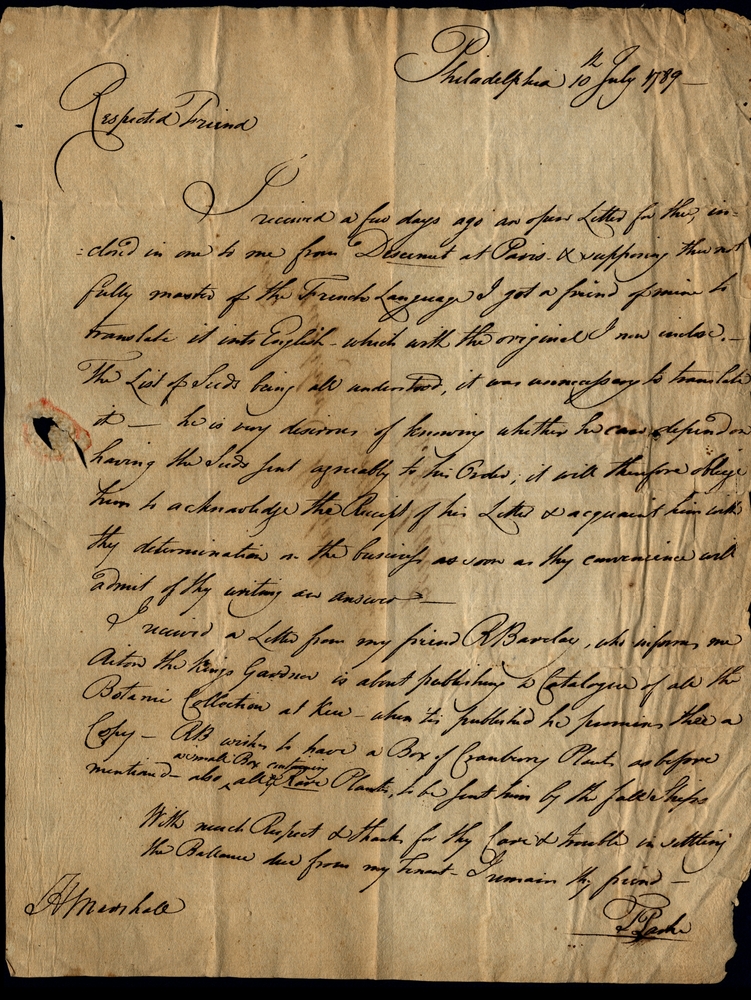 Philadelphia 10th July 1789 —
Respected Friend
I received a few days ago an open Letter for thee, in-
=closed in one to me from Descemet at Paris. & supposing thee not
fully master of the French Language I got a friend of mine to
translate it into English - which with the original I now inclose. —
The List of Seeds being all understood, it was unnecessary to translate
it — he is very desirous of knowing whether he can depend on
having the Seeds sent agreeably to his Order, it will therefore oblige
him to acknowledge the Receipt of his Letter & acquaint him with
thy determination on the business as soon as thy convenience will
admit of thy writing an answer —
I received a Letter from my friend R Barclay, who informs me
Aiton the Kings Gardner is about publishing a Catalogue of all the
Botanic Collection at Kew - when tis published he promises thee a
Copy — RB wishes to have a Box of Cranberry Plants as before
a small Box containing
mentioned - also Rare Plants, to be sent him by the fall Ships
With much Respect & thanks for thy Care & trouble in settling
the Ballance due from my Tenant - I remain thy friend —
Parke
H Marshall